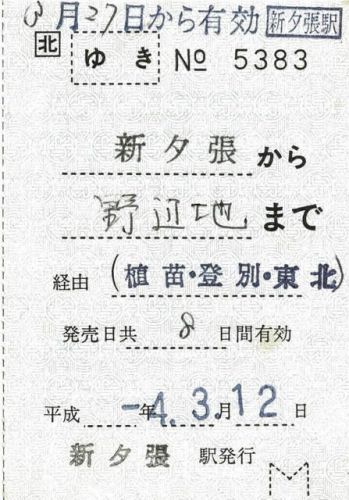 3月27日から有効 新夕張駅
北 ゆき № 5383
新夕張から
野辺地まで
経由 (植苗・登別・東北)
発売日共 8 日間有効
平成 -年4.3.月12日
新夕張 駅発行